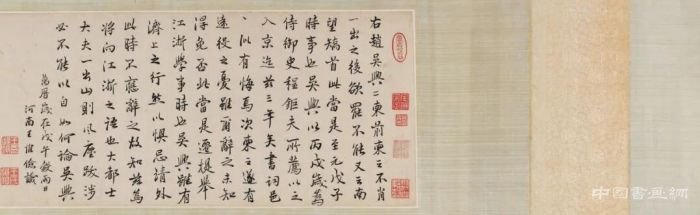 右趙吳興二柬前柬云不肖
一出之後欲罷不能又云南
望矯首此當是至元戊子
時事也吳興以丙戌歲為
侍御史程鉅夫所薦以之
入京迄茲三年矣書詞邑
〻似有悔焉次柬云遂有
遠役之憂雖爾辭之未知
得免否此當是遷提舉
江浙學事時也吳興雖有
濟上之行然以懼忌請外
此時不應辭之故知其為
將向江浙之語也大都士
大夫一出山則風塵跋涉
必不能以自如何論吳興
萬曆歲在戊午穀雨日
河南王惟儉識
中国書画網